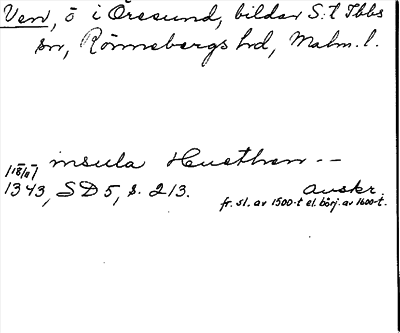 Ven, ö i Öresund, bildar S:t Ibbs
sn, Rönnebergs hd, Malm. l.
insula Huethwen --
[18/11]
1343, SD 5, s. 213.
avskr.
fr. sl. av 1500-t el. börj. av 1600-t.